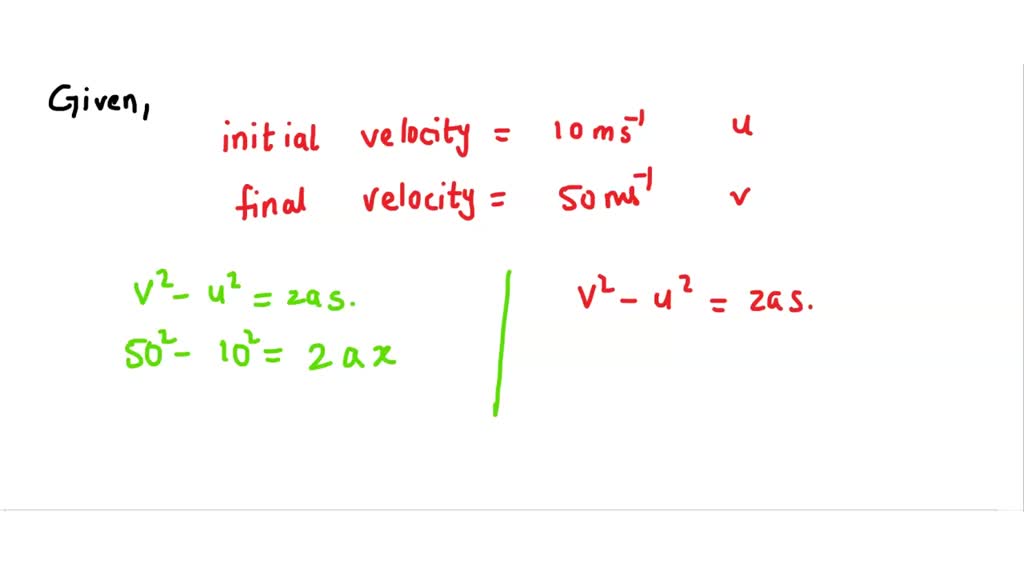 Given,
initial velocity = 10 ms⁻¹ u
final velocity = 50 ms⁻¹ v
v² - u² = 2as.
50² - 10² = 2ax
v² - u² = 2as.